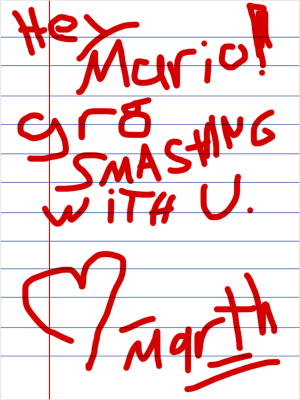 Hey
Mario!
gr8
SMASHING
WiTH U.
♡ Marth